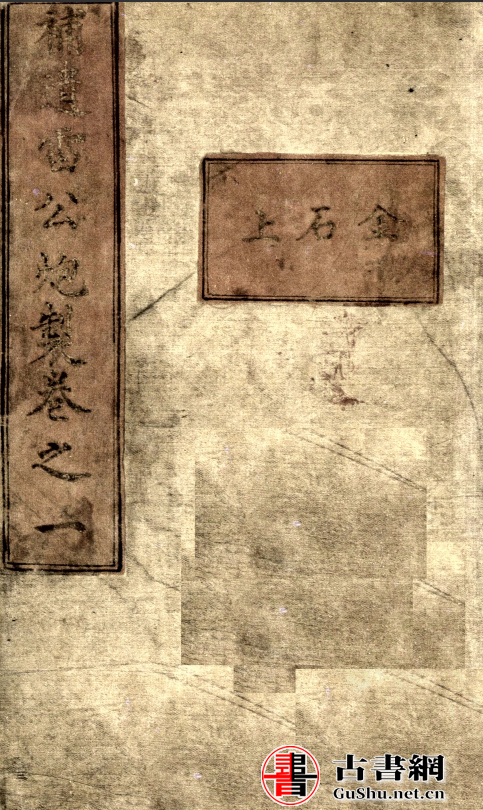 補遺雷公炮製卷之一
金石上
書
古書網
GuShu.net.cn